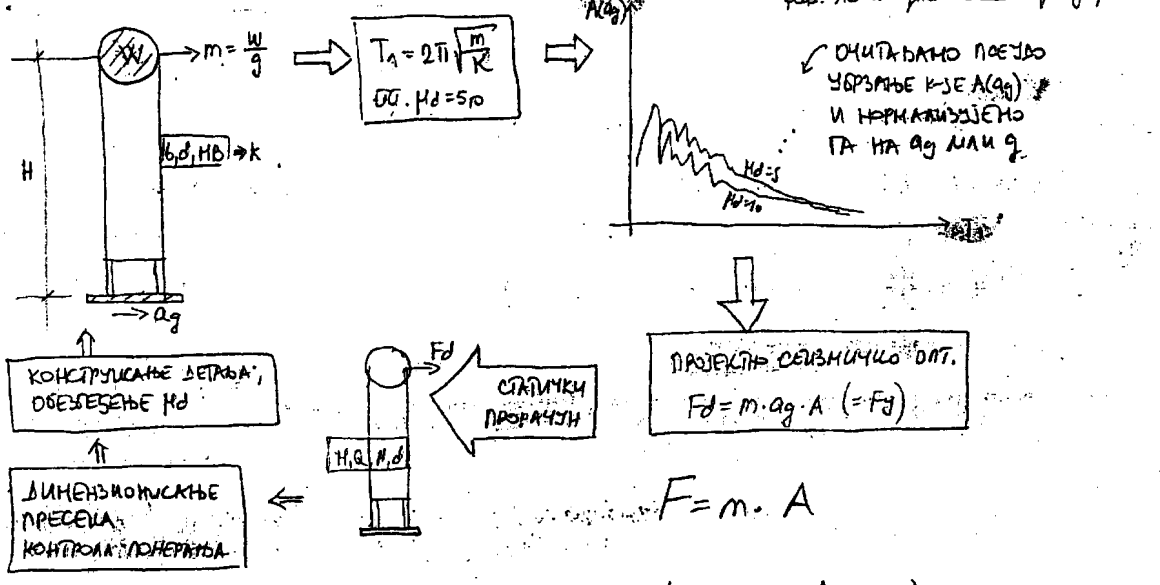 W
m = W/g
H
b, d, MB ⇒ K
→ ag
T₁ = 2π√(m/K)
μd = 5
A(ag)
μd=5
μd=10
ОЧИТАВАМО ПСЕУДО
УБРЗАЊЕ К-ЈЕ A(ag)
И НОРМАЛИЗУЈЕМО
ГА НА ag ИЛИ g
ПРОЈЕКТНО СЕИЗМИЧКО ОПТ.
Fd = m·ag·A (= Fy)
СТАТИЧКИ
ПРОРАЧУН
Fd
M, Q, N, d
КОНСТРУИСАЊЕ ДЕТАЉА,
ОБЕЗБЕЂЕЊЕ μd
ДИМЕНЗИОНИСАЊЕ
ПРЕСЕКА
КОНТРОЛА ПОМЕРАЊА
F = m · A